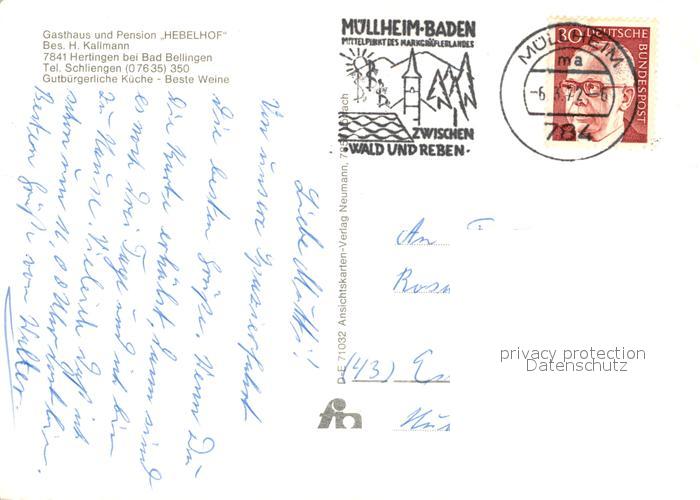 Gasthaus und Pension „HEBELHOF"
Bes. H. Kallmann
7841 Hertingen bei Bad Bellingen
Tel. Schliengen (07635) 350
Gutbürgerliche Küche - Beste Weine
MÜLLHEIM·BADEN
MITTELPUNKT DES MARKGRÄFLERLANDES
ZWISCHEN
WALD UND REBEN·
MÜLLHEIM
ma
-6.3.72-6
784
30 DEUTSCHE
BUNDESPOST
D-E 71032 Ansichtskarten-Verlag Neumann, 785 Lörrach
Liebe Mutti!
Von unserer
die besten Grüße. Wenn Du
die Karte erhälst, dann sind
es noch drei Tage und ich bin
zu Hause. Vieleicht daß ich
schon um 11,00 Uhr dort bin.
Besten Grüße von Walter.
An
Rosa
(43) Es
privacy protection
Datenschutz
fn